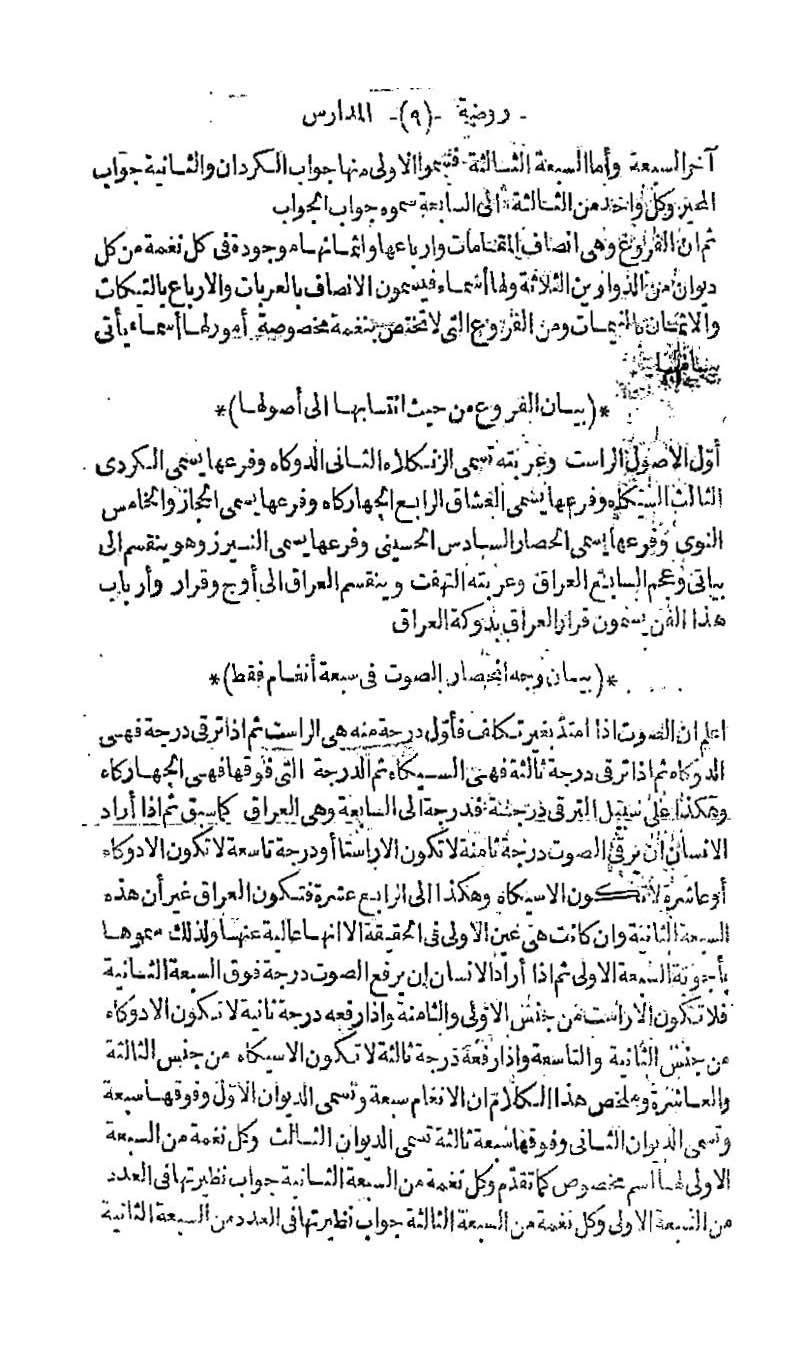 روضة -(٩)- المدارس
آخر السبعة وأما السبعة الثالثة فسموا الاولى منها جواب الكردان والثانية جواب
المحير وكل واحد من الثالثة الى السابعة سموه جواب الجواب
ثم ان الفروع وهى انصاف المقامات وارباعها واثمانها موجودة فى كل نغمة من كل
ديوان من الدواوين الثلاثة ولها أسماء فيسمون الانصاف بالعربات والارباع بالتيكات
والاثمان بالنيمات ومن الفروع التى لا تختص بنغمة مخصوصة أمور لها أسماء يأتى
بيانها
*(بيان الفروع من حيث انتسابها الى أصولها)*
أوّل الاصول الراست وعربته تسمى الزنكلاه الثانى الدوكاه وفرعها يسمى الكردى
الثالث السيكاه وفرعها يسمى العشاق الرابع الجهاركاه وفرعها يسمى الحجاز والخامس
النوى وفرعها يسمى الحصار السادس الحسينى وفرعها يسمى النيرز وهو ينقسم الى
بياتى وعجم السابع العراق وعربته النهفت وينقسم العراق الى أوج وقرار وأرباب
هذا الفن يسمون قرار العراق بدوكة العراق
*(بيان وجه انحصار الصوت فى سبعة أنغام فقط)*
اعلم ان الصوت اذا امتد بغير تكلف فأوّل درجة منه هى الراست ثم اذا ترقى درجة فهى
الدوكاه ثم اذا ترقى درجة ثالثة فهى السيكاه ثم الدرجة التى فوقها فهى الجهاركاه
وهكذا على سبيل الترقى درجة فدرجة الى السابعة وهى العراق كما سبق ثم اذا أراد
الانسان ان يرقى الصوت درجة ثامنة لا تكون الا راستا أو درجة تاسعة لا تكون الا دوكاه
أو عاشرة لا تكون الا سيكاه وهكذا الى الرابع عشرة فتكون العراق غير أن هذه
السبعة الثانية وان كانت هى عين الاولى فى الحقيقة الا انها عالية عنها ولذلك سموها
بأجوبة السبعة الاولى ثم اذا أراد الانسان ان يرفع الصوت درجة فوق السبعة الثانية
فلا تكون الا راست من جنس الاولى والثامنة واذا رفعه درجة ثانية لا تكون الا دوكاه
من جنس الثانية والتاسعة واذا رفعه درجة ثالثة لا تكون الا سيكاه من جنس الثالثة
والعاشرة وملخص هذا الكلام ان الانغام سبعة وتسمى الديوان الاول وفوقها سبعة
وتسمى الديوان الثانى وفوقها سبعة ثالثة تسمى الديوان الثالث وكل نغمة من السبعة
الاولى لها اسم مخصوص كما تقدّم وكل نغمة من السبعة الثانية جواب نظيرتها فى العدد
من السبعة الاولى وكل نغمة من السبعة الثالثة جواب نظيرتها فى العدد من السبعة الثانية